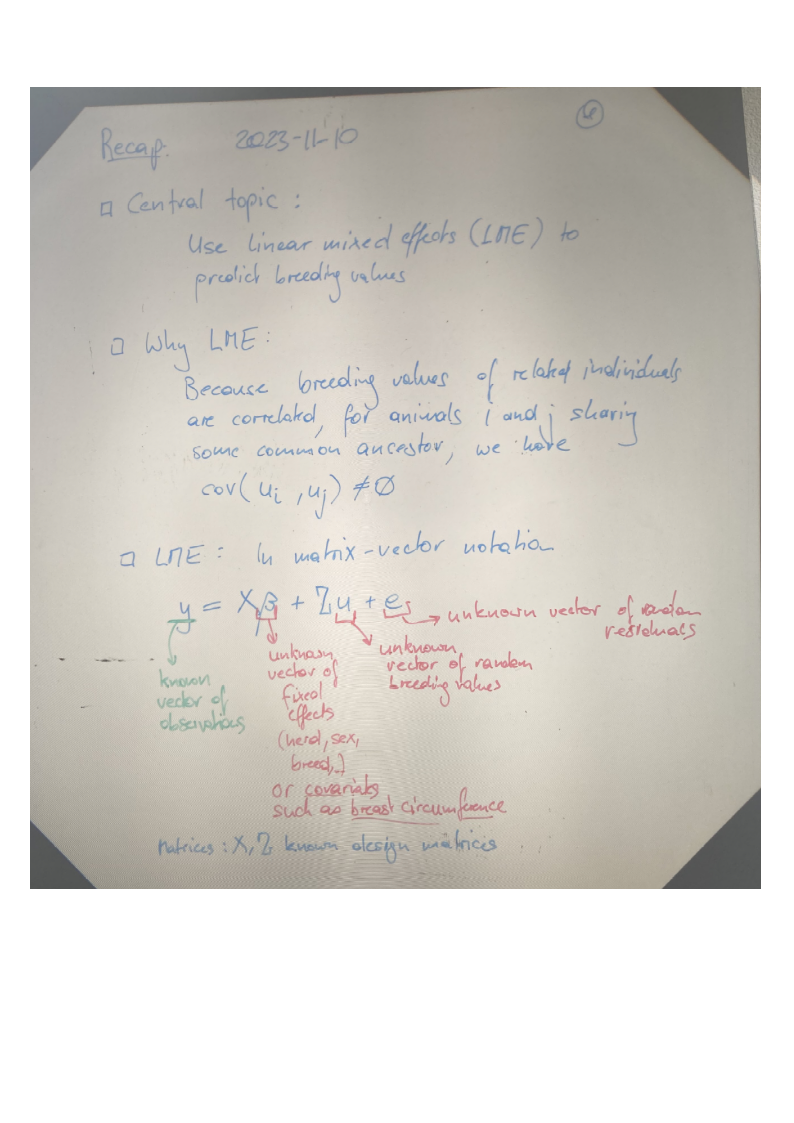 Recap: 2023-11-10
□ Central topic:
Use linear mixed effects (LME) to
predict breeding values
□ Why LME:
Because breeding values of related individuals
are correlated, for animals i and j sharing
some common ancestor, we have
cov(ui, uj) ≠ 0
□ LME: In matrix-vector notation
y = Xβ + Zu + e
unknown vector of random
residuals
known
vector of
observations
unknown
vector of
fixed
effects
(herd, sex,
breed,..)
or covariates
such as breast circumference
unknown
vector of random
breeding values
Matrices: X, Z known design matrices